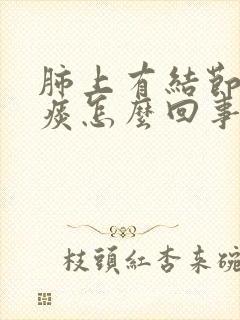 肺上有結節
痰怎麼回事
枝頭紅杏来碗